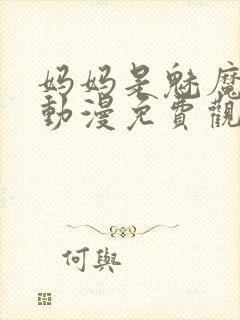 妈妈是魅魔
動漫免費觀
何與